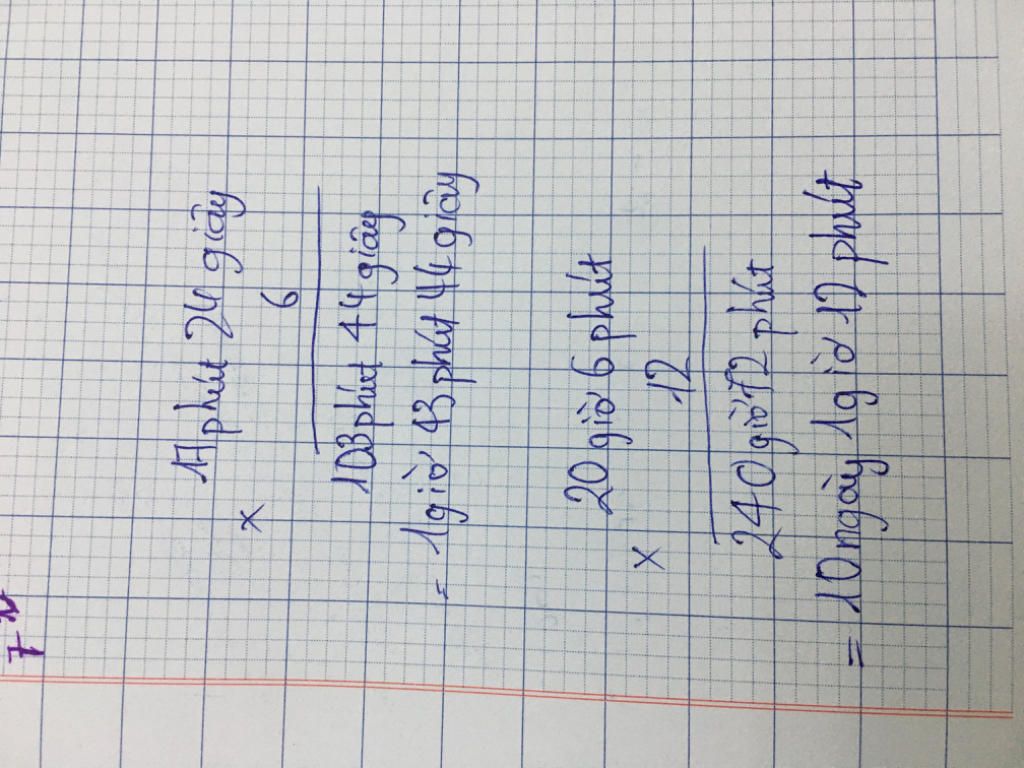 17 phút 24 giây
x
6
103 phút 44 giây
= 1 giờ 43 phút 44 giây
20 giờ 6 phút
x
12
240 giờ 72 phút
= 10 ngày 1 giờ 12 phút